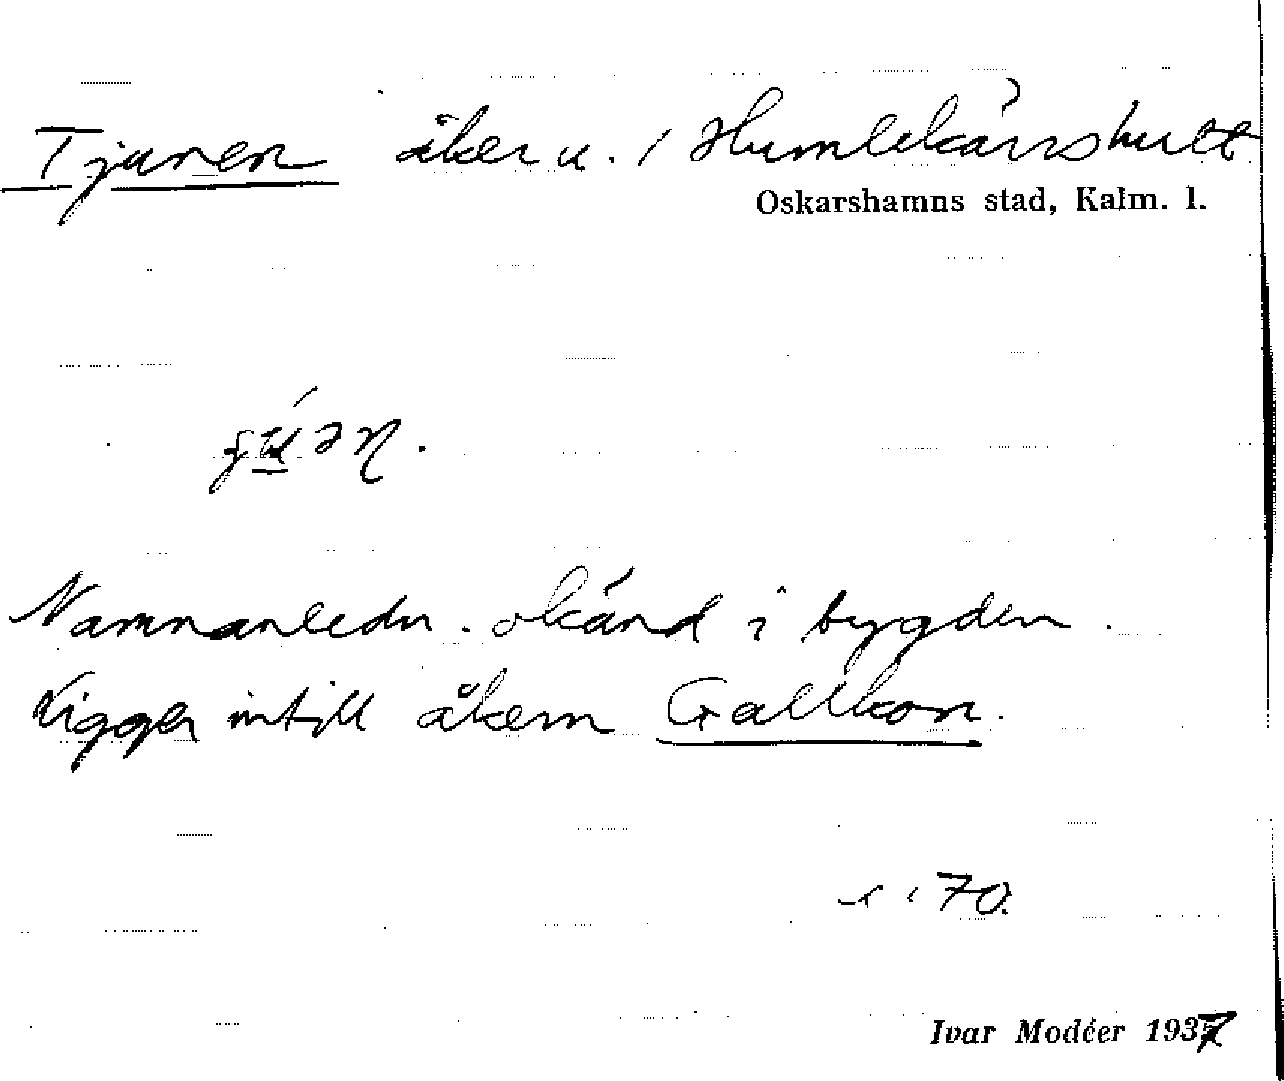 Tjuren åker u. i Humlekärrshult
Oskarshamns stad, Kalm. l.
Namnanledn. okänd i bygden.
Ligger intill åkern Gallkon.
i 70.
Ivar Modéer 1937